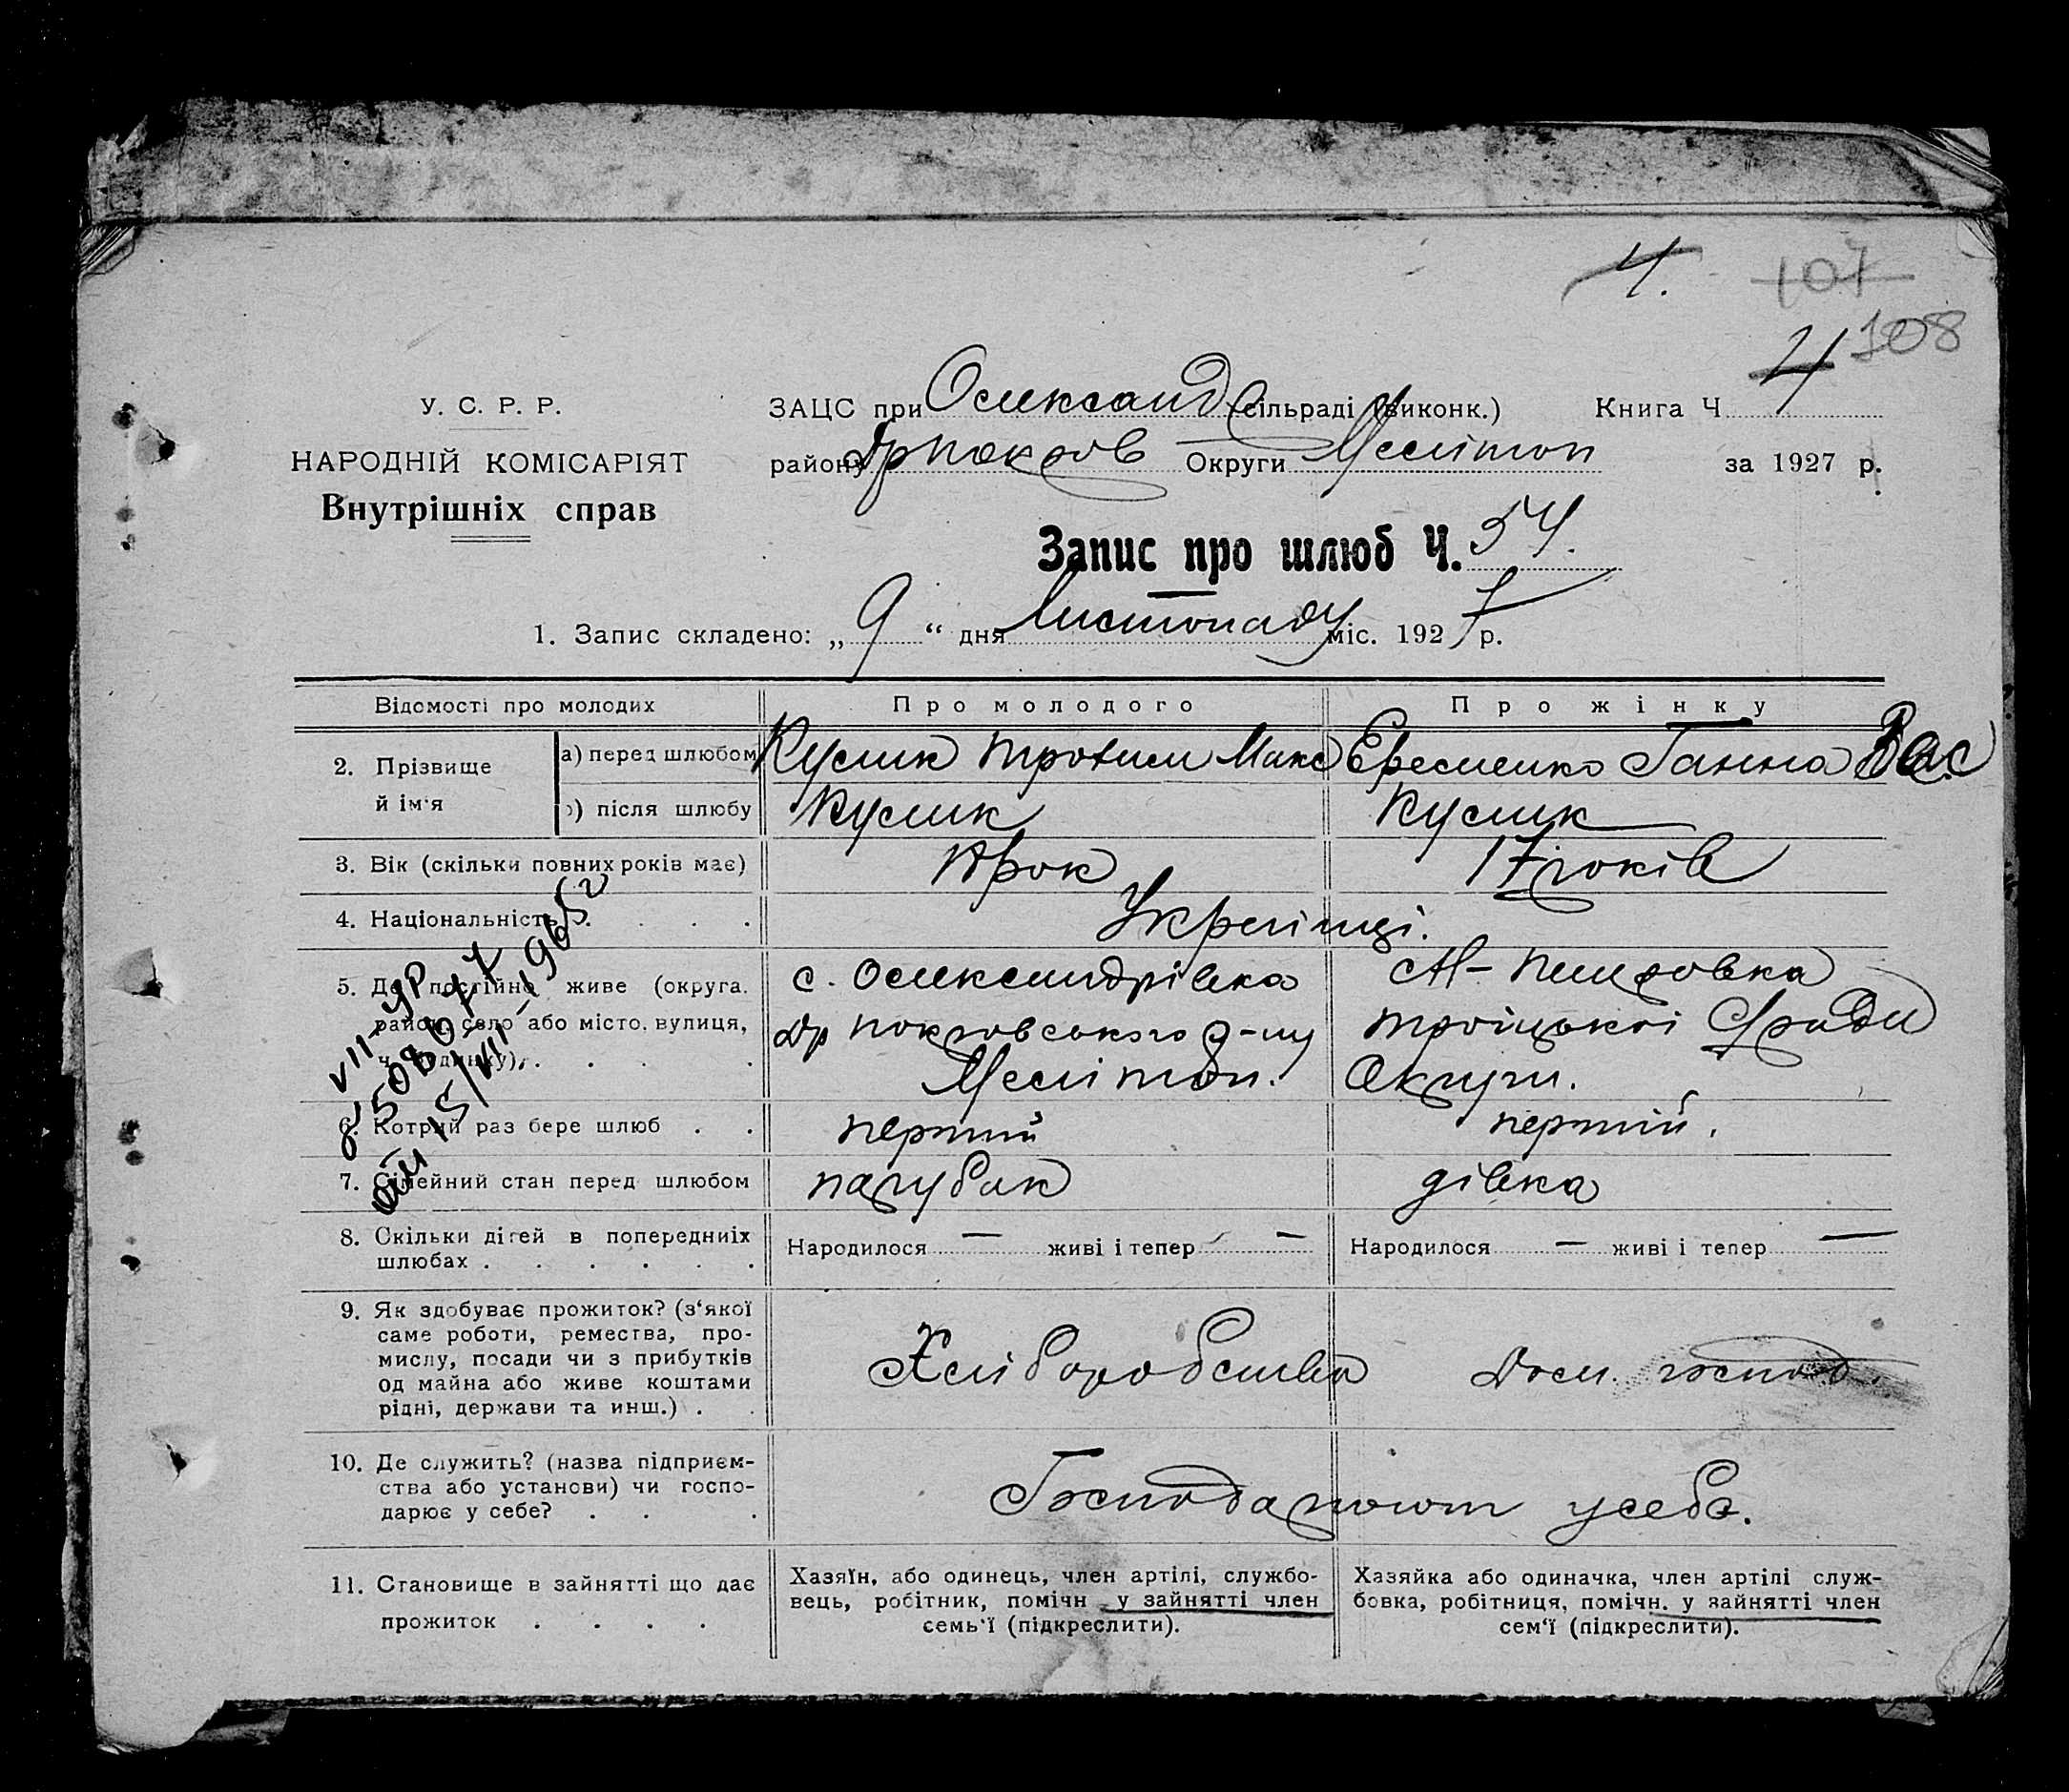 4.
107
108
У. С. Р. Р.
НАРОДНІЙ КОМІСАРІЯТ
Внутрішніх справ
ЗАЦС при Олександ (сільраді виконк.) Книга Ч 4
району Др Покров Округи Мелітоп за 1927 р.
Запис про шлюб Ч. 54.
1. Запис складено: „ 9 “ дня Листопаду міс. 1927 р.
Відомості про молодих Про молодого Про жінку
2. Прізвище й ім'я
а) перед шлюбом Кулик Трохим Макс Єременко Ганна Вас
б) після шлюбу Кулик Кулик
3. Вік (скільки повних років має) рок 17 років
4. Національність Українці.
5. Де постійно живе (округа, район, село або місто, вулиця, ч. будинку) с. Олександрівка
Др Покровського р-ну
Мелітоп.
Троїцької С/ради
Округи.
VII-УР
250867
15/VII-1965
6. Котрий раз бере шлюб перший перший.
7. Сімейний стан перед шлюбом парубок дівка
8. Скільки дітей в попередніх шлюбах Народилося — живі і тепер — Народилося — живі і тепер —
9. Як здобуває прожиток? (з'якої
саме роботи, ремества, про-
мислу, посади чи з прибутків
од майна або живе коштами
рідні, держави та инш.) Хліборобство Дом. господ.
10. Де служить? (назва підприєм-
ства або установи) чи госпо-
дарює у себе? Господарюют у себе.
11. Становище в зайнятті що дає
прожиток
Хазяїн, або одинець, член артілі, службо-
вець, робітник, помічн у зайнятті член
семь'ї (підкреслити).
Хазяйка або одиначка, член артілі служ-
бовка, робітниця, помічн. у зайнятті член
сем'ї (підкреслити).